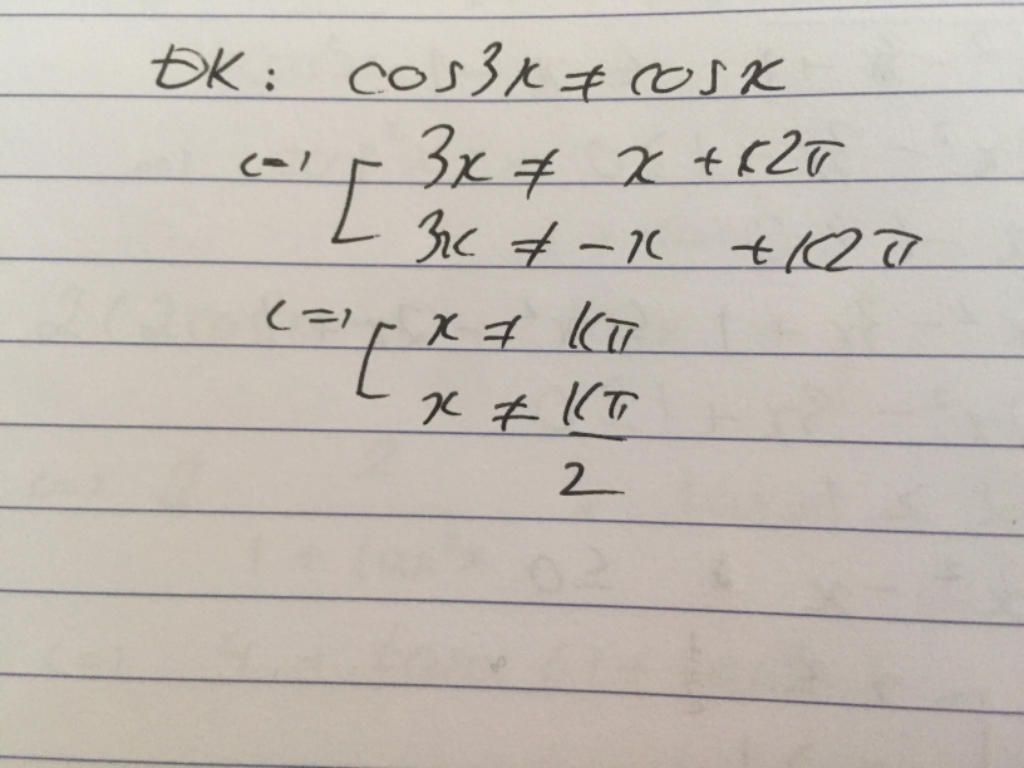 ĐK: cos3x ≠ cosx
<=> [ 3x ≠ x + k2π
3x ≠ -x + k2π
<=> [ x ≠ kπ
x ≠ kπ/2